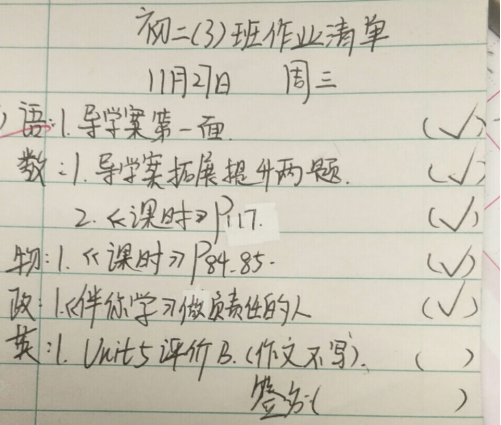 初二(3)班作业清单
11月27日 周三
语:1.导学案第一面. (✓)
数:1.导学案拓展提升两题. (✓)
2.《课时》P117. (✓)
物:1.《课时》P84-85. (✓)
政:1.《伴你学习做负责任的人 (✓)
英:1.Unit5评价B.(作文不写). ( )
签名( )